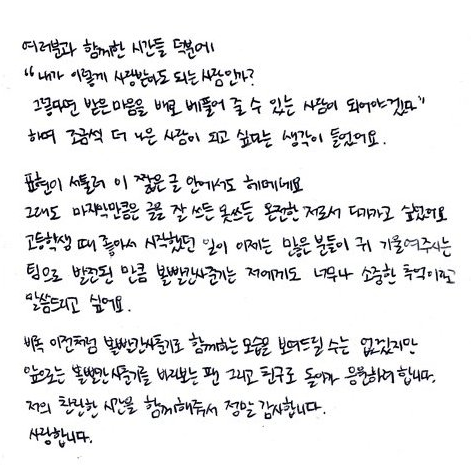 여러분과 함께한 시간들 덕분에
"내가 이렇게 사랑받아도 되는 사람인가?
그렇다면 받은 마음을 배로 베풀어 줄 수 있는 사람이 되어야겠다"
하며 조금씩 더 나은 사람이 되고 싶다는 생각이 들었어요.
표현이 서툴러 이 짧은 글 안에서도 헤매네요
그래도 마지막만큼은 글을 잘 쓰든 못쓰든 온전한 저로서 다가가고 싶었어요
고등학생 때 좋아서 시작했던 일이 이제는 많은 분들이 귀 기울여주시는
팀으로 발전된 만큼 볼빨간사춘기는 저에게도 너무나 소중한 추억이라고
말씀드리고 싶어요.
비록 이전처럼 볼빨간사춘기로 함께하는 모습을 보여드릴 수는 없겠지만
앞으로는 볼빨간사춘기를 바라보는 팬 그리고 친구로 돌아가 응원하려 합니다.
저의 찬란한 시간을 함께해줘서 정말 감사합니다.
사랑합니다.